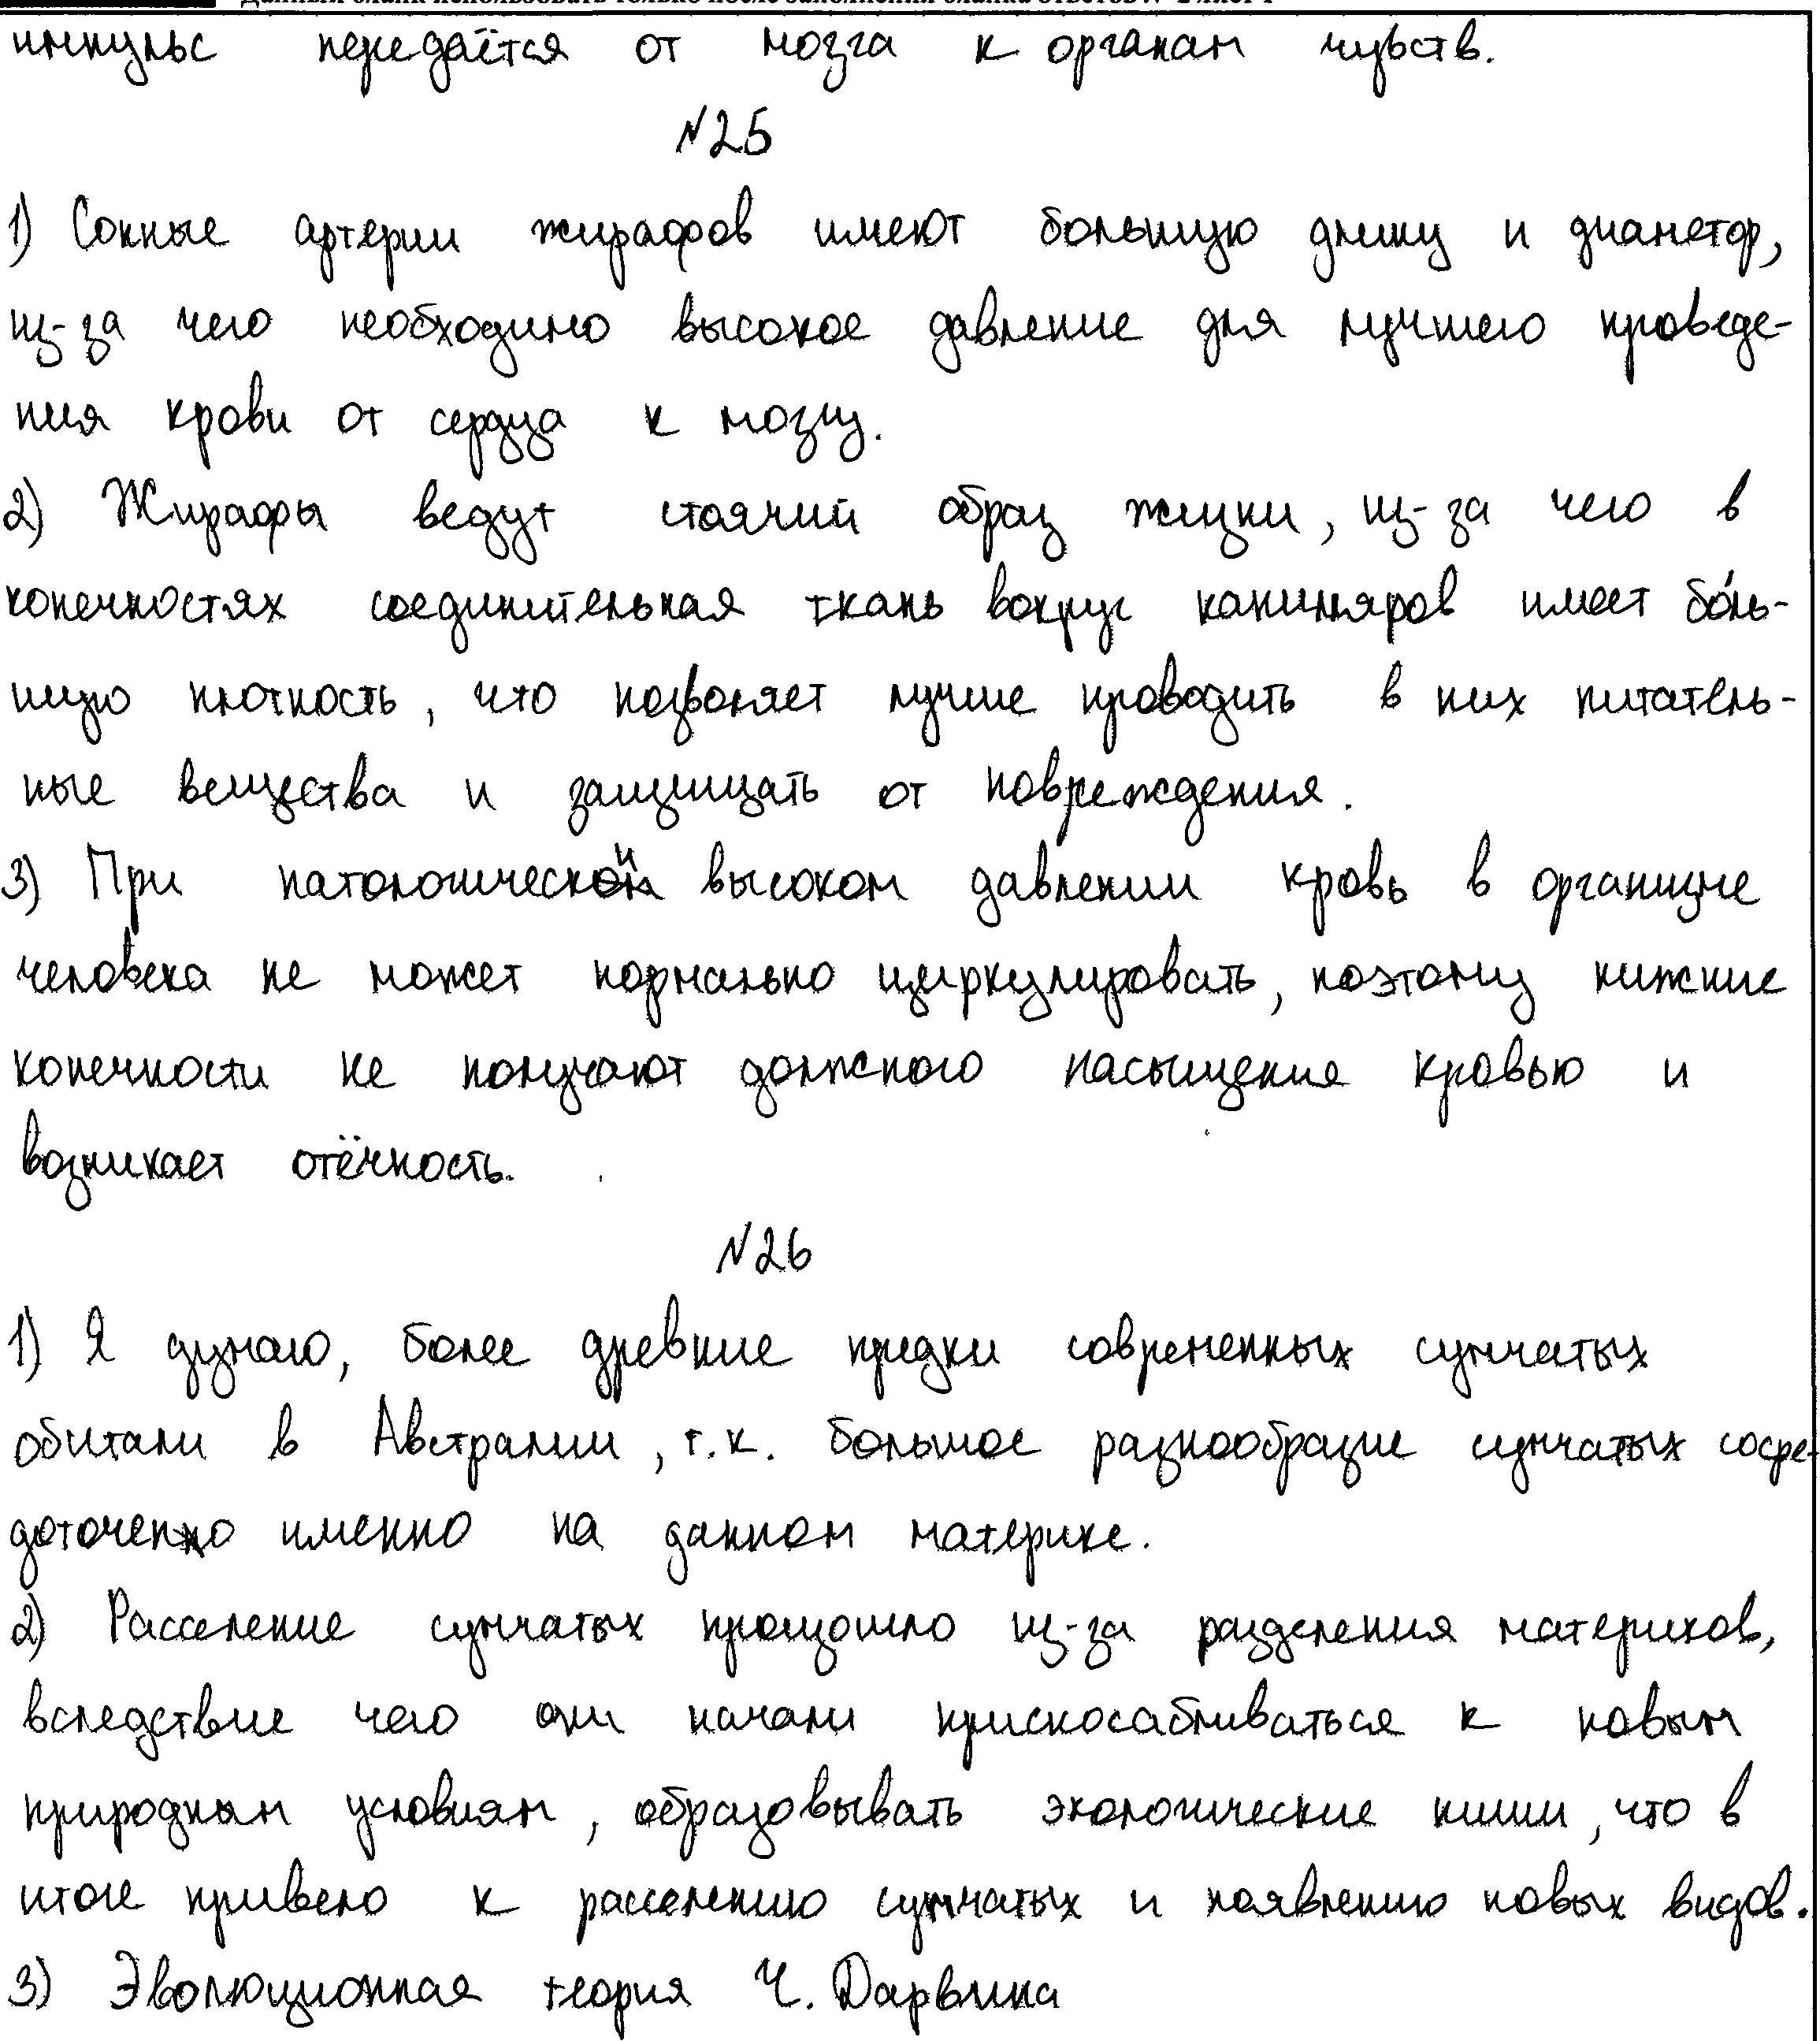 импульс передаётся от мозга к органам чувств.
№25
1) Сонные артерии жирафов имеют большую длину и диаметр,
из-за чего необходимо высокое давление для лучшего проведе-
ния крови от сердца к мозгу.
2) Жирафы ведут стоячий образ жизни, из-за чего в
конечностях соединительная ткань вокруг капилляров имеет бо́ль-
шую плотность, что позволяет лучше проводить в них питатель-
ные вещества и защищать от повреждения.
3) При патологически высоком давлении кровь в организме
человека не может нормально циркулировать, поэтому нижние
конечности не получают должного насыщения кровью и
возникает отёчность.
№26
1) Я думаю, более древние предки современных сумчатых
обитали в Австралии, т.к. большое разнообразие сумчатых сосре-
доточенно именно на данном материке.
2) Расселение сумчатых произошло из-за разделения материков,
вследствие чего они начали приспосабливаться к новым
природным условиям, образовывать экологические ниши, что в
итоге привело к расселению сумчатых и появлению новых видов.
3) Эволюционная теория Ч. Дарвина